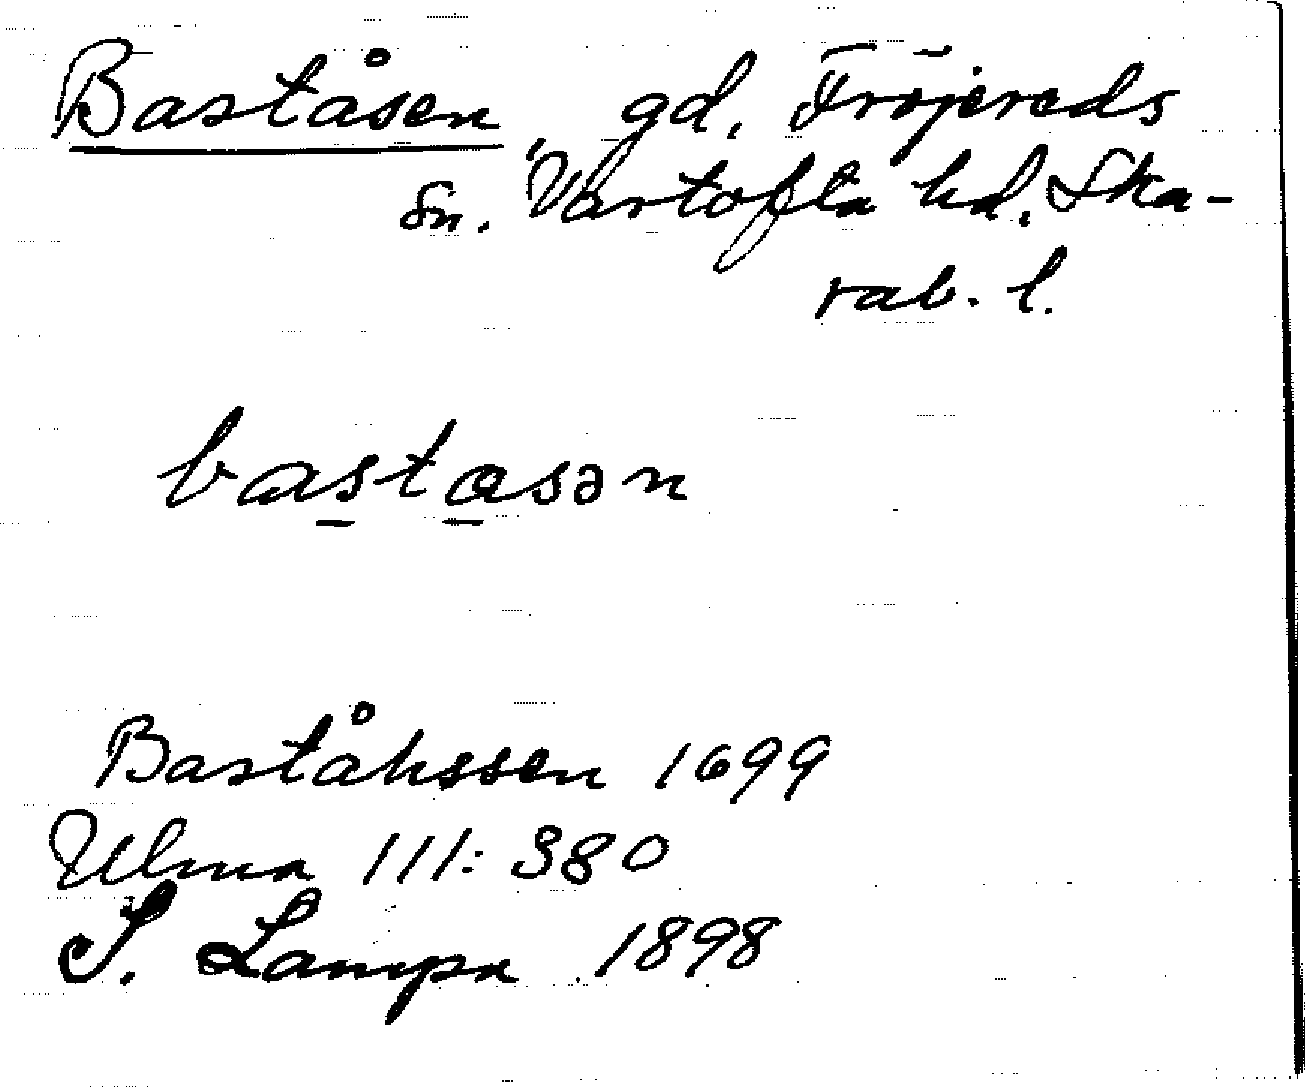 Baståsen gd, Fröjereds
sn. Vartofta hd. Ska-
rab. l.
bastasən
Baståhssen 1699
Ulma 111: 380
S. Lampa 1898